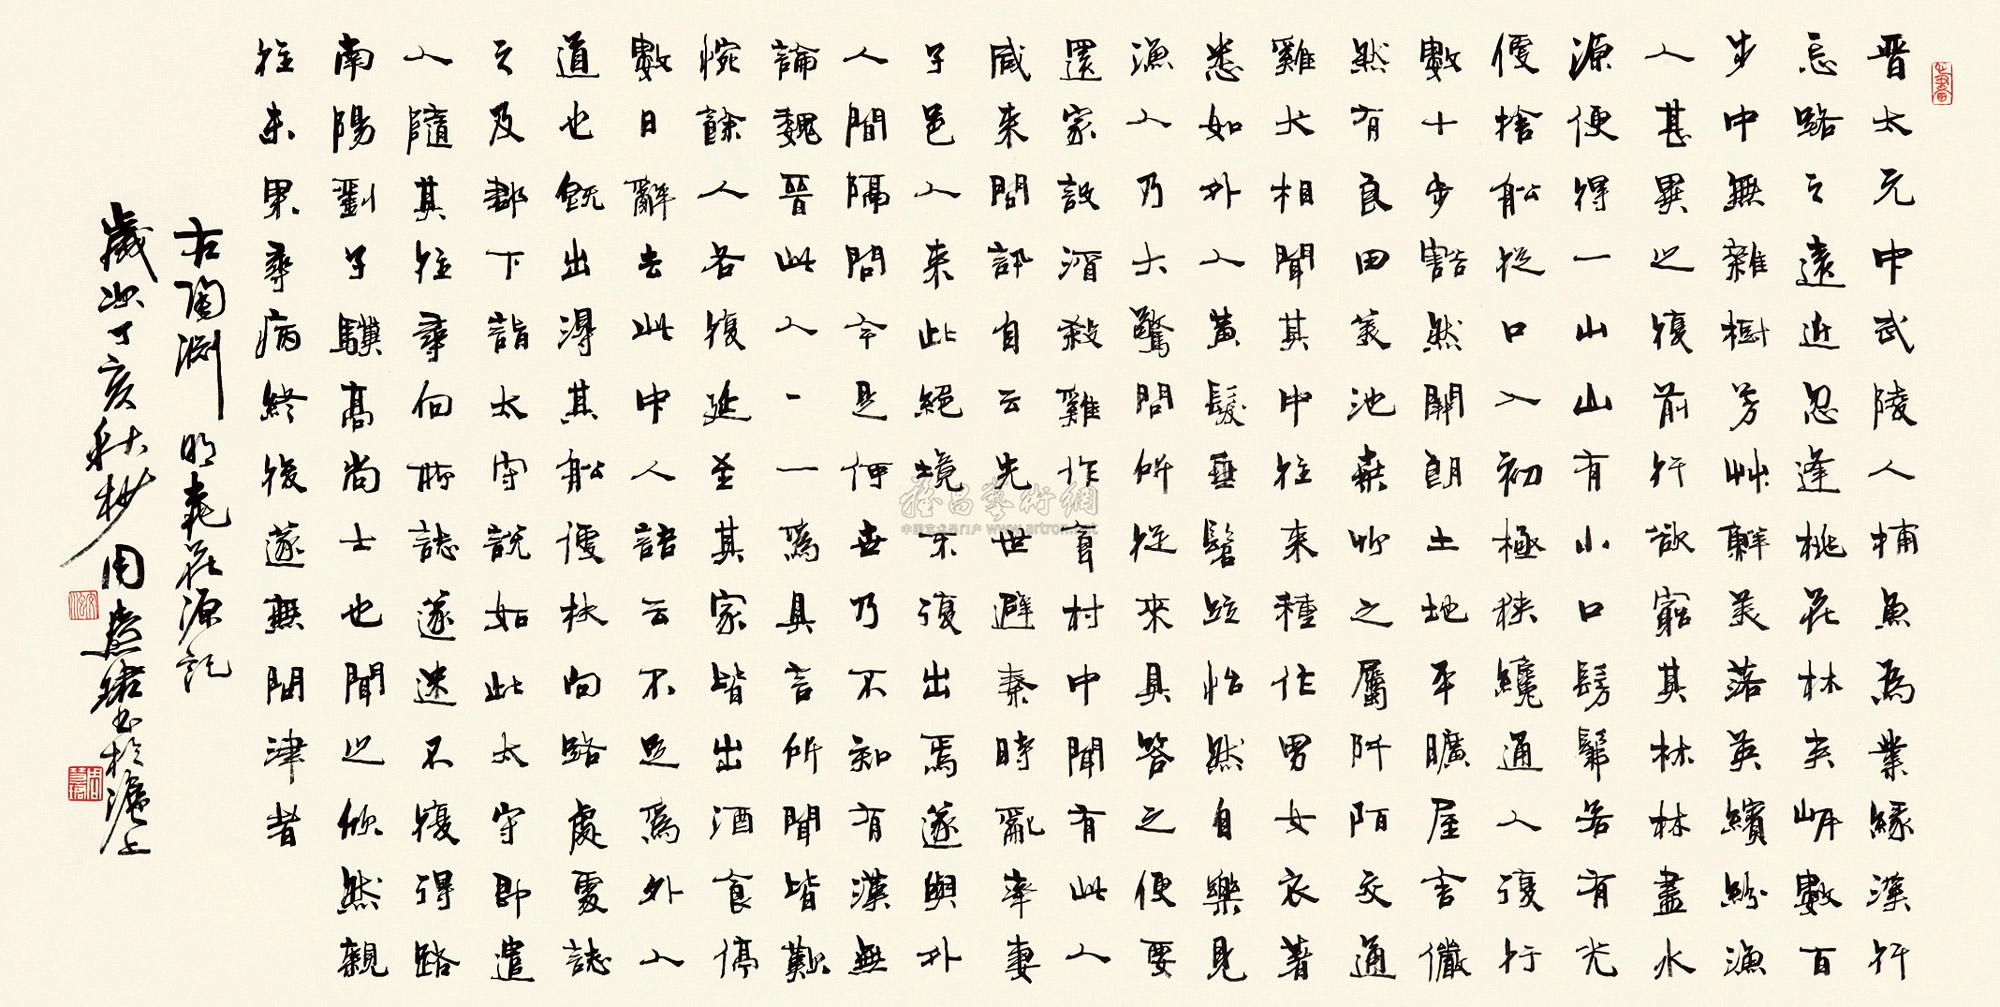 晋太元中武陵人捕魚為業緣溪行
忘路之遠近忽逢桃花林夾岍數百
步中無雜樹芳艸鮮美落英繽紛漁
人甚異之復前行欲窮其林林盡水
源便得一山山有小口髣髴若有光
便捨船從口入初極狹纔通人復行
數十步豁然開朗土地平曠屋舍儼
然有良田美池桑竹之屬阡陌交通
雞犬相聞其中往来種作男女衣著
悉如外人黃髮垂髫並怡然自樂見
漁人乃大驚問所從來具答之便要
還家設酒殺雞作食村中聞有此人
咸来問訊自云先世避秦時亂率妻
子邑人来此絕境不復出焉遂與外
人間隔問今是何世乃不知有漢無
論魏晉此人一一為具言所聞皆歎
惋餘人各復延至其家皆出酒食停
數日辭去此中人語云不足為外人
道也既出得其船便扶向路處處誌
之及郡下詣太守說如此太守即遣
人隨其往尋向所誌遂迷不復得路
南陽劉子驥高尚士也聞之欣然親
往未果尋病終後遂無問津者
右陶渊明桃花源記
歲次丁亥秋杪周慧珺书於滬上
雅昌藝術網
中国艺术品门户 www.artron.net